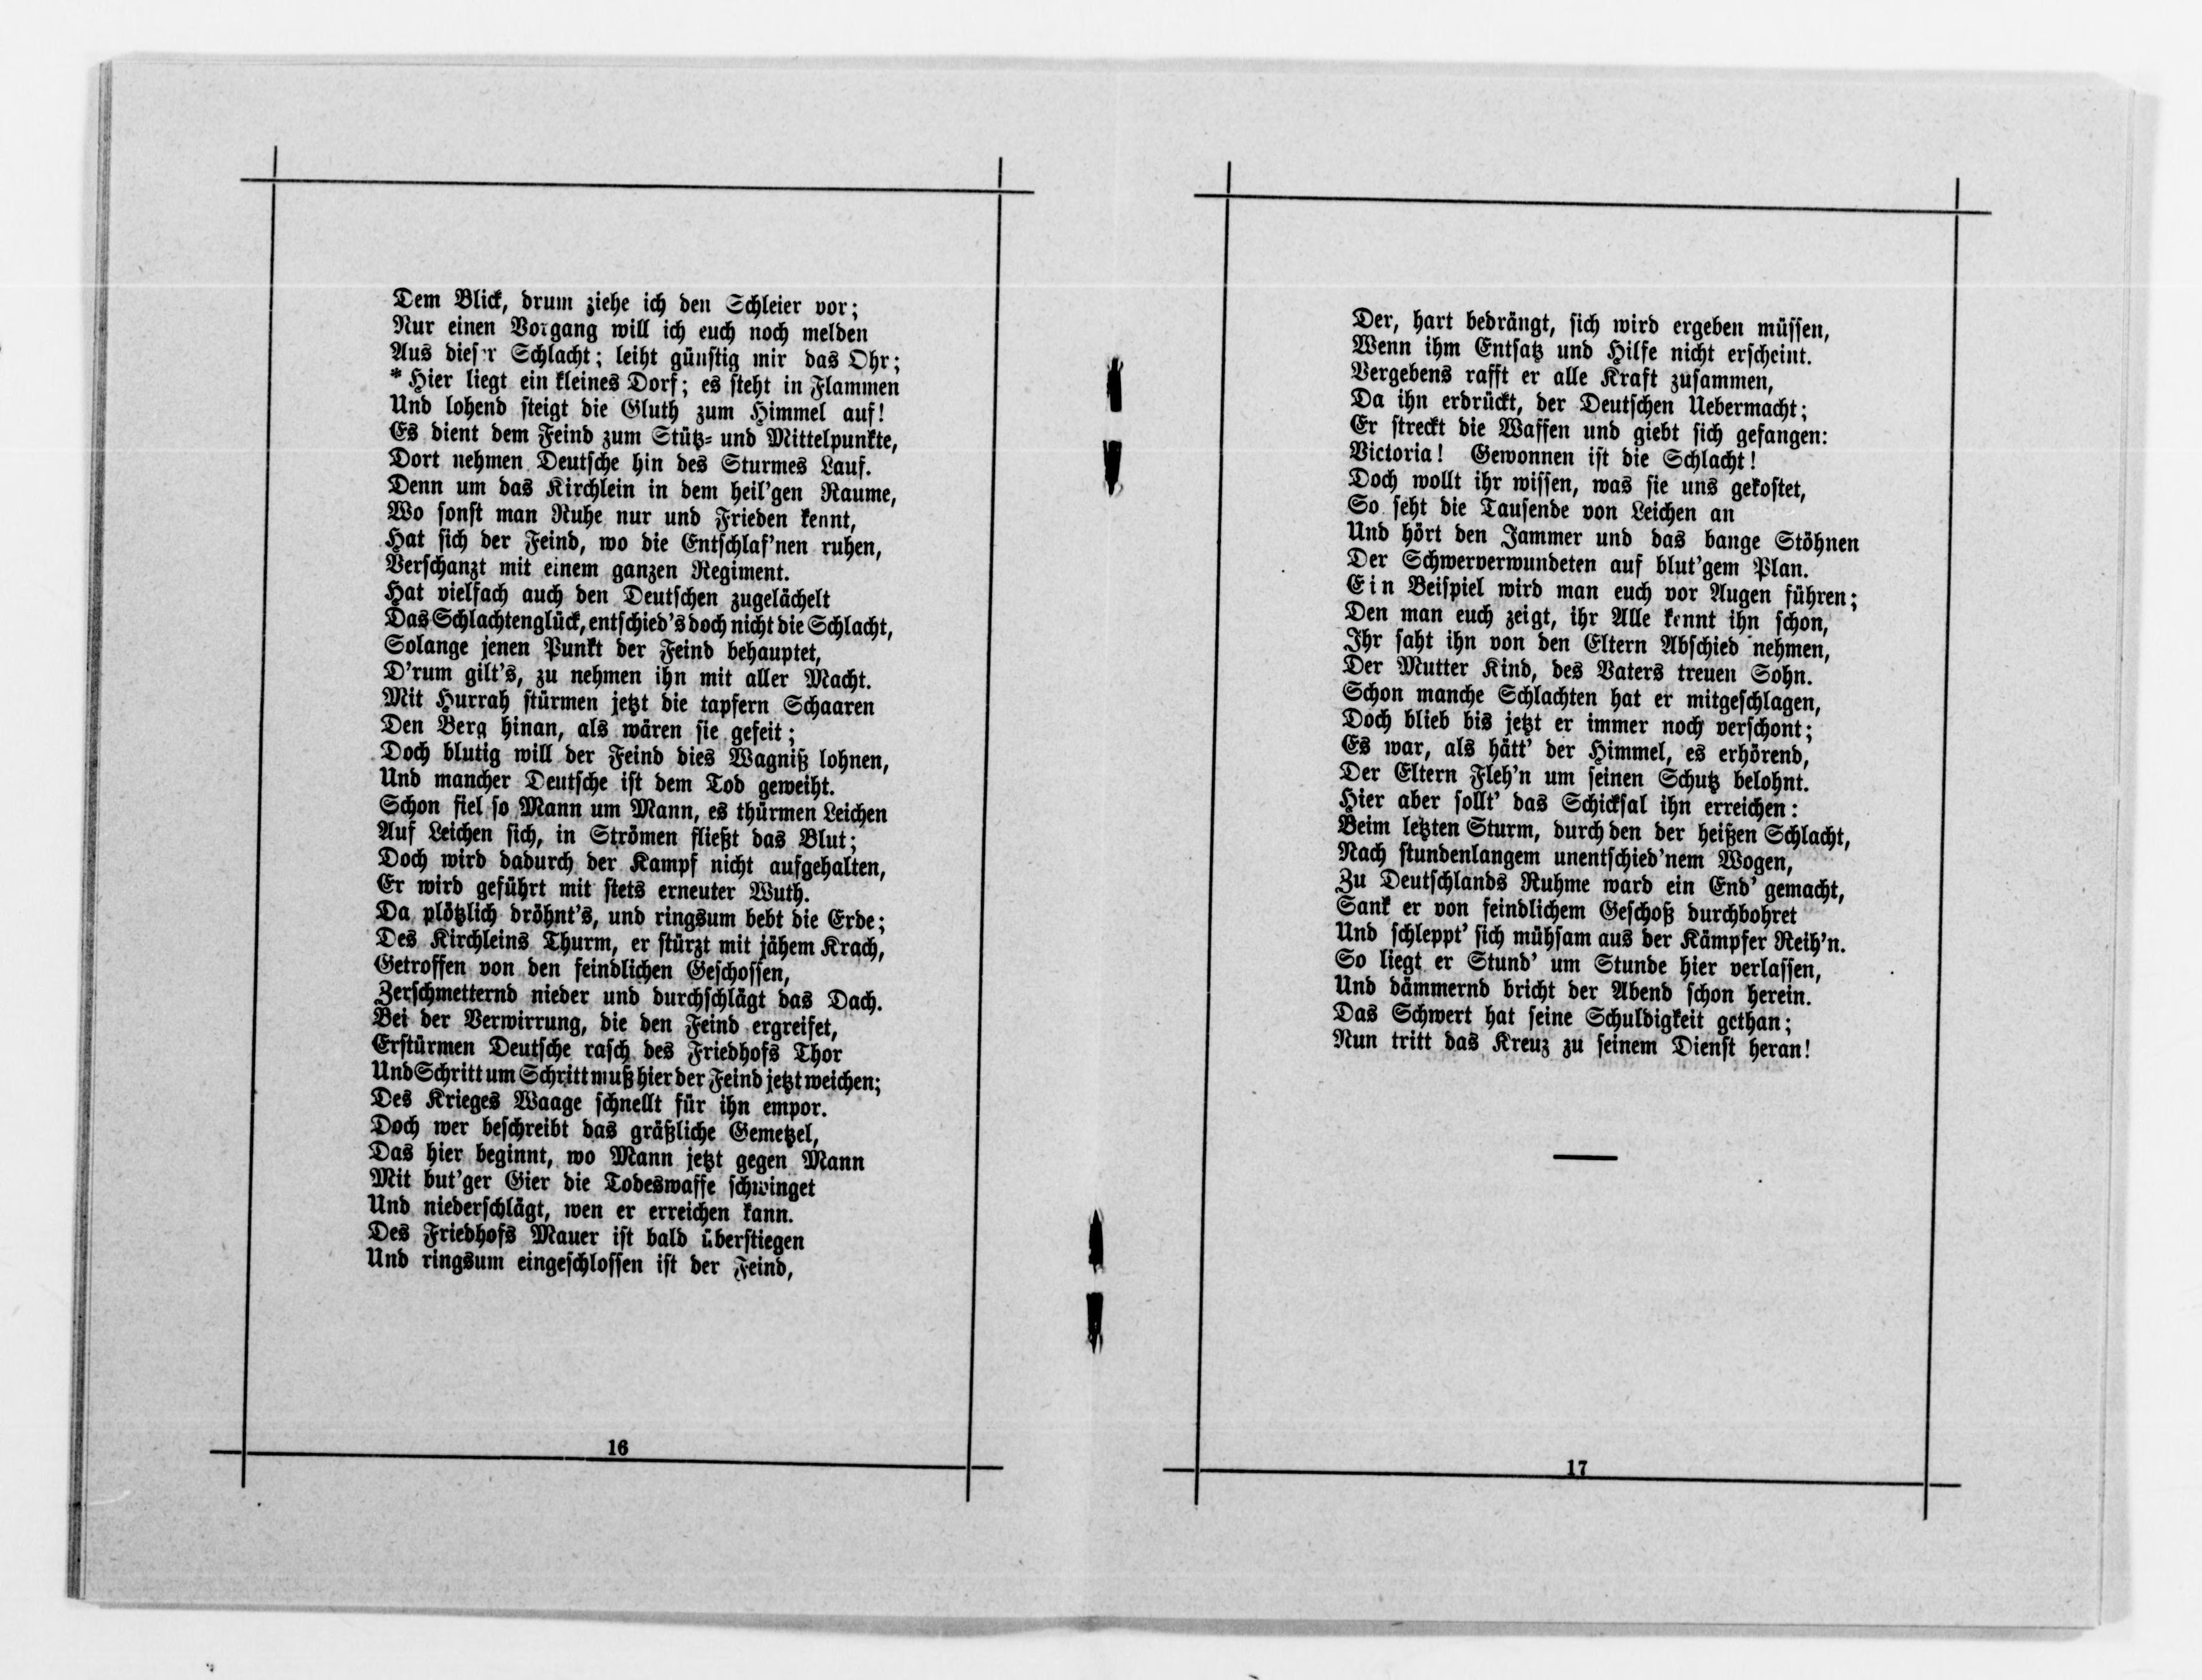 Dem Blick, drum ziehe ich den Schleier vor;
Nur einen Vorgang will ich euch noch melden
Aus dieser Schlacht; leiht günstig mir das Ohr;
* Hier liegt ein kleines Dorf; es steht in Flammen
Und lohend steigt die Gluth zum Himmel auf!
Es dient dem Feind zum Stütz- und Mittelpunkte,
Dort nehmen Deutsche hin des Sturmes Lauf.
Denn um das Kirchlein in dem heil'gen Raume,
Wo sonst man Ruhe nur und Frieden kennt,
Hat sich der Feind, wo die Entschlaf'nen ruhen,
Verschanzt mit einem ganzen Regiment.
Hat vielfach auch den Deutschen zugelächelt
Das Schlachtenglück, entschied's doch nicht die Schlacht,
Solange jenen Punkt der Feind behauptet,
D'rum gilt's, zu nehmen ihn mit aller Macht.
Mit Hurrah stürmen jetzt die tapfern Schaaren
Den Berg hinan, als wären sie gefeit;
Doch blutig will der Feind dies Wagniß lohnen,
Und mancher Deutsche ist dem Tod geweiht.
Schon fiel so Mann um Mann, es thürmen Leichen
Auf Leichen sich, in Strömen fließt das Blut;
Doch wird dadurch der Kampf nicht aufgehalten,
Er wird geführt mit stets erneuter Wuth.
Da plötzlich dröhnt's, und ringsum bebt die Erde;
Des Kirchleins Thurm, er stürzt mit jähem Krach,
Getroffen von den feindlichen Geschossen,
Zerschmetternd nieder und durchschlägt das Dach.
Bei der Verwirrung, die den Feind ergreifet,
Erstürmen Deutsche rasch des Friedhofs Thor
Und Schritt um Schritt muß hier der Feind jetzt weichen;
Des Krieges Waage schnellt für ihn empor.
Doch wer beschreibt das gräßliche Gemetzel,
Das hier beginnt, wo Mann jetzt gegen Mann
Mit but'ger Gier die Todeswaffe schwinget
Und niederschlägt, wen er erreichen kann.
Des Friedhofs Mauer ist bald überstiegen
Und ringsum eingeschlossen ist der Feind,
16
Der, hart bedrängt, sich wird ergeben müssen,
Wenn ihm Entsatz und Hilfe nicht erscheint.
Vergebens rafft er alle Kraft zusammen,
Da ihn erdrückt, der Deutschen Uebermacht;
Er streckt die Waffen und giebt sich gefangen:
Victoria! Gewonnen ist die Schlacht!
Doch wollt ihr wissen, was sie uns gekostet,
So seht die Tausende von Leichen an
Und hört den Jammer und das bange Stöhnen
Der Schwerverwundeten auf blut'gem Plan.
Ein Beispiel wird man euch vor Augen führen;
Den man euch zeigt, ihr Alle kennt ihn schon,
Ihr saht ihn von den Eltern Abschied nehmen,
Der Mutter Kind, des Vaters treuen Sohn.
Schon manche Schlachten hat er mitgeschlagen,
Doch blieb bis jetzt er immer noch verschont;
Es war, als hätt' der Himmel, es erhörend,
Der Eltern Fleh'n um seinen Schutz belohnt.
Hier aber sollt' das Schicksal ihn erreichen:
Beim letzten Sturm, durch den der heißen Schlacht,
Nach stundenlangem unentschied'nem Wogen,
Zu Deutschlands Ruhme ward ein End' gemacht,
Sank er von feindlichem Geschoß durchbohret
Und schleppt' sich mühsam aus der Kämpfer Reih'n.
So liegt er Stund' um Stunde hier verlassen,
Und dämmernd bricht der Abend schon herein.
Das Schwert hat seine Schuldigkeit gethan;
Nun tritt das Kreuz zu seinem Dienst heran!
17